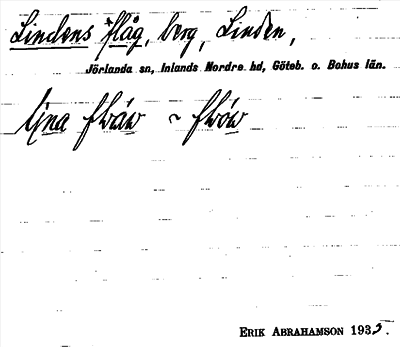 Lindens *flåg, berg, Linden,
Jörlanda sn, Inlands Nordre hd, Göteb. o. Bohus län.
~
ERIK ABRAHAMSON 1935.